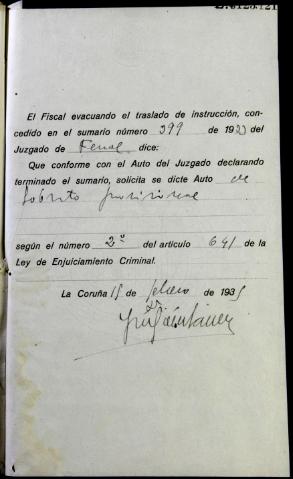 El Fiscal evacuando el traslado de instrucción, con-
cedido en el sumario número 399 de 193 del
Juzgado de Ferrol dice:
Que conforme con el Auto del Juzgado declarando
terminado el sumario, solicita se dicte Auto de
provisional
según el número 2º del artículo 641 de la
Ley de Enjuiciamiento Criminal.
La Coruña 15 de febrero de 1935